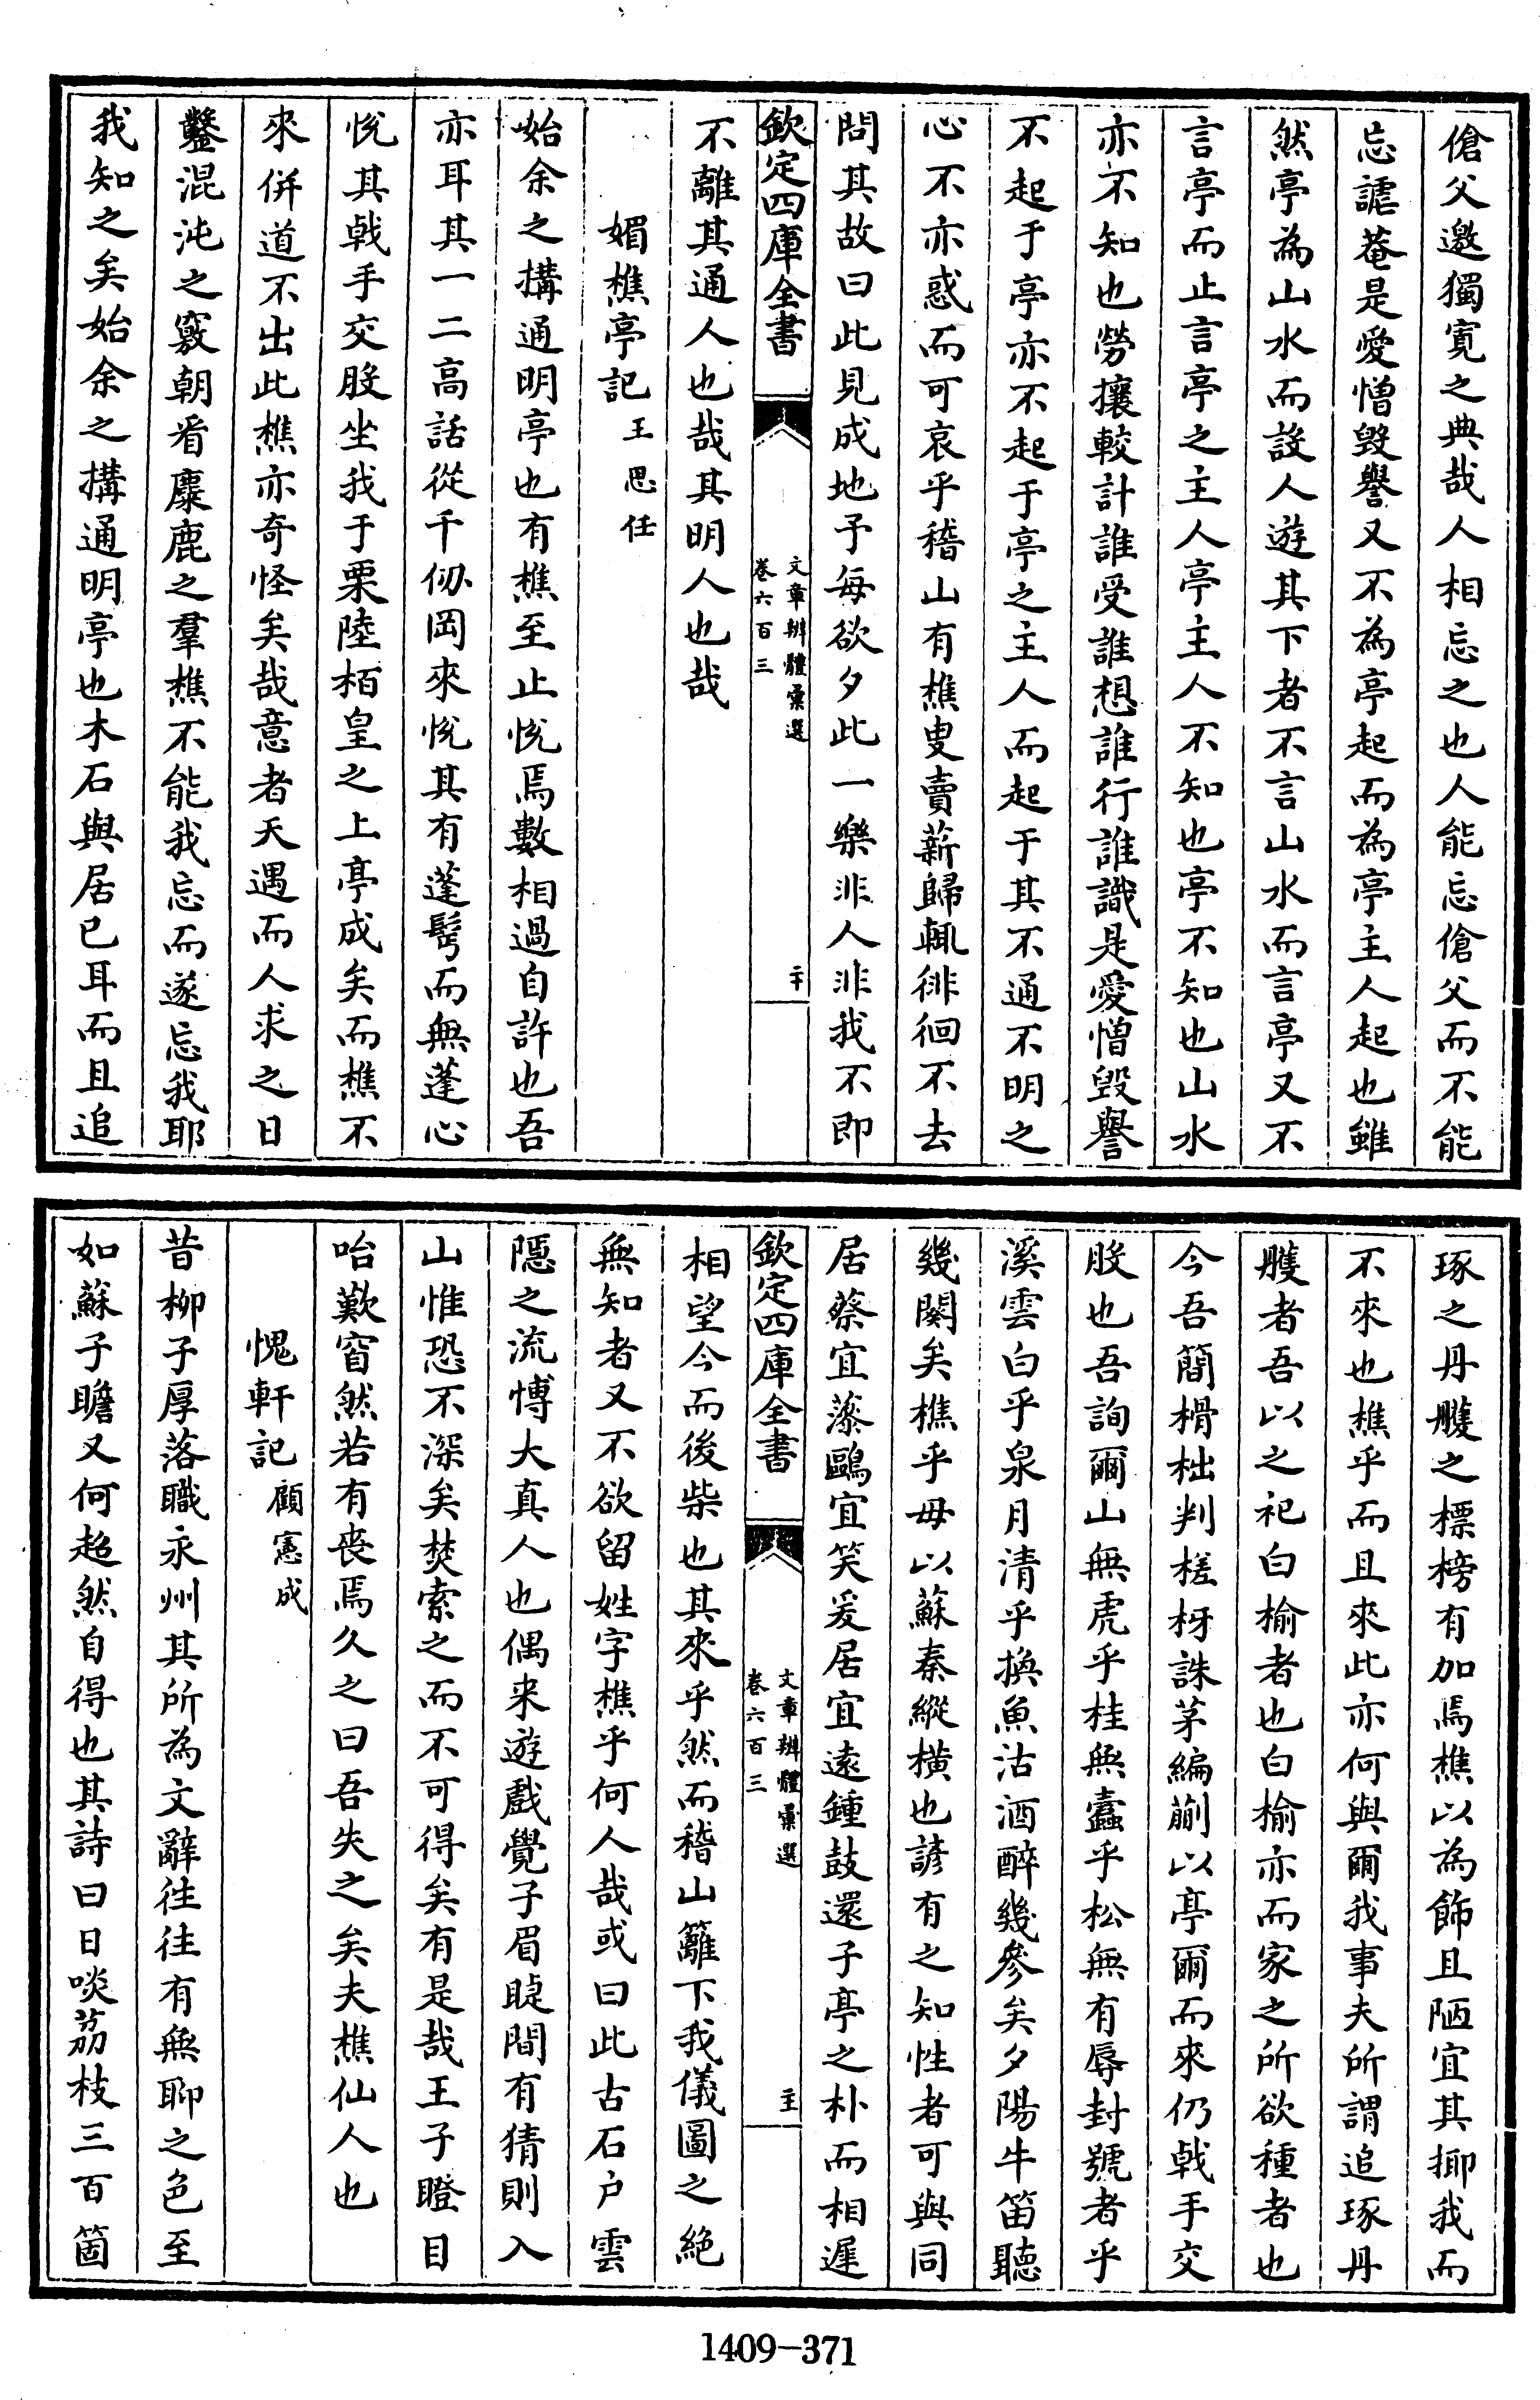 傖父邀獨寛之典哉人相忘之也人能忘傖父而不能
忘謔菴是愛憎毀譽又不為亭起而為亭主人起也雖
然亭為山水而設人遊其下者不言山水而言亭又不
言亭而止言亭之主人亭主人不知也亭不知也山水
亦不知也勞攘較計誰受誰想誰行誰識是愛憎毀譽
不起于亭亦不起于亭之主人而起于其不通不明之
心不亦惑而可哀乎稽山有樵叟賣薪歸輒徘徊不去
問其故曰此見成地予每欲夕此一樂非人非我不即
欽定四庫全書
文章辨體彙選
卷六百三
二十
不離其通人也哉其明人也哉
媚樵亭記 王思任
始余之搆通明亭也有樵至止恱焉數相過自許也吾
亦耳其一二高話從千仞岡來恱其有蓬髩而無蓬心
恱其戟手交股坐我于栗陸栢皇之上亭成矣而樵不
來併道不出此樵亦奇怪矣哉意者天遇而人求之日
鑿混沌之竅朝看麋鹿之羣樵不能我忘而遂忘我耶
我知之矣始余之搆通明亭也木石與居已耳而且追
琢之丹雘之標榜有加焉樵以為飾且陋宜其揶我而
不來也樵乎而且來此亦何與爾我事夫所謂追琢丹
雘者吾以之祀白榆者也白榆亦而家之所欲種者也
今吾簡榾柮判槎枒誅茅編蒯以亭爾而來仍戟手交
股也吾詢爾山無虎乎桂無蠹乎松無有辱封號者乎
溪雲白乎泉月清乎換魚沽酒醉幾參矣夕陽牛笛聽
幾闋矣樵乎毋以蘇秦縱橫也諺有之知性者可與同
居蔡宜藻鷗宜笑爰居宜遠鍾鼓還子亭之朴而相遲
欽定四庫全書
文章辨體彙選
卷六百三
二十一
相望今而後柴也其來乎然而稽山籬下我儀圖之絶
無知者又不欲留姓字樵乎何人哉或曰此古石户雲
隠之流博大真人也偶来遊戲覺子眉睫間有猜則入
山惟恐不深矣焚索之而不可得矣有是哉王子瞪目
咍歎窅然若有丧焉久之曰吾失之矣夫樵仙人也
愧軒記 顧憲成
昔柳子厚落職永州其所為文辭往往有無聊之色至
如蘇子瞻又何超然自得也其詩曰日啖荔枝三百箇
1409-371